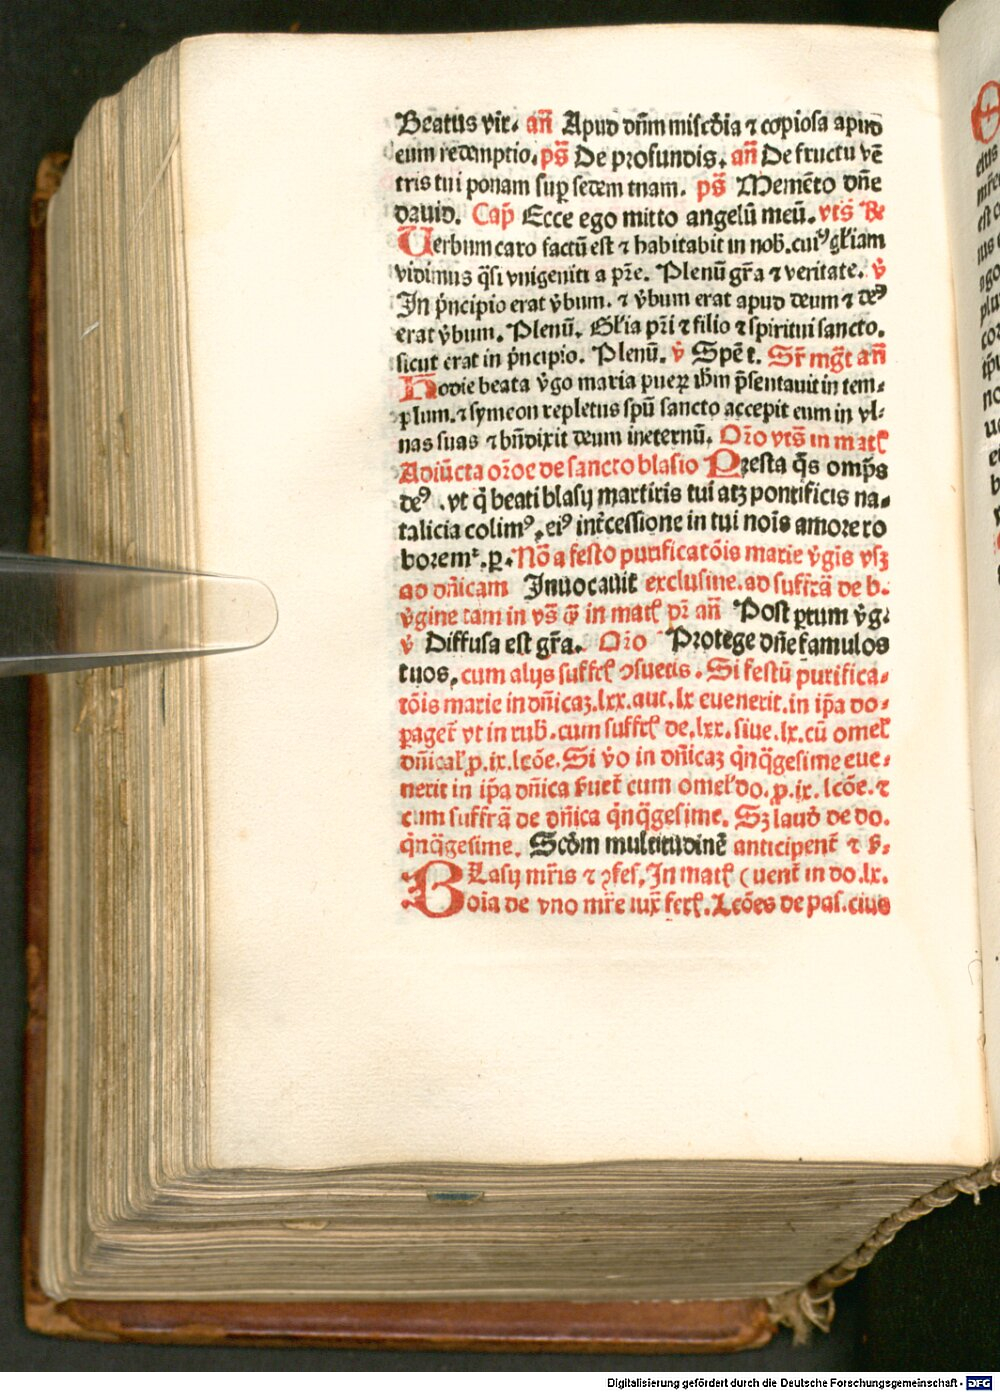 Beatus vir. an̄ Apud dn̄m misc̄dia ⁊ copiosa apud
eum redemptio. ps̄ De profundis. an̄ De fructu vē
tris tui ponam sup̱ sedem tuam. ps̄ Memēto dn̄e
dauid. Cap̄ Ecce ego mitto angelū meū. vts̄ ℞
Uerbum caro factū est ⁊ habitabit in nob. cuiꝰ gl̄iam
vidimus q̄si vnigeniti a pr̄e. Plenū gr̄a ⁊ veritate. v̄
In p̄ncipio erat v̄bum. ⁊ v̄bum erat apud deum ⁊ deꝰ
erat v̄bum. Plenū. Gl̄ia pr̄i ⁊ filio ⁊ spiritui sancto.
sicut erat in p̄ncipio. Plenū. v̄ Spēt. Sr̄ mḡt an̄
Hodie beata v̄go maria pueꝝ ih̄m p̄sentauit in tem⸗
plum. ⁊ symeon repletus spū sancto accepit eum in vl⸗
nas suas ⁊ bn̄dixit deum ineternū. Oꝛ̄o vts̄ in matꝭ
Adiūcta oꝛōe de sancto blasio Pꝛesta q̄s omp̄s
deꝰ. vt q̄ beati blasij martiris tui atꝫ pontificis na⸗
talicia colimꝰ. eiꝰ int̄cessione in tui nois̄ amoꝛe ro
boꝛemᷣ. p̱. Nō a festo purificatōis marie v̄gīs vsꝫ
ad dn̄icam Inuocauit exclusiue. ad suffrā de b.
v̄gine tam in vs̄ q̄ in matꝭ dꝛ̄ an̄ Post ꝑtum v̄g.
v̄ Diffusa est gr̄a. Oꝛ̄o Protege dn̄e famulos
tuos. cum alijs suffrꝭ ꝯsuetis. Si festū purifica⸗
tōis marie in dn̄icaꝫ. lxx. aut. lx euenerit. in ip̄a do⸗
ꝑaget̄ vt in rub̄. cum suffrꝭ de. lxx. siue. lx. cū omel̄
dn̄ical̄ p̱. ix. lcōe. Si v̄o in dn̄icaꝫ q̄nq̄gesime eue⸗
nerit in ip̄a dn̄ica ẜuet̄ cum omel̄ do. p̱. ix. lcōe. ⁊
cum suffrā de dn̄ica q̄nq̄gesime. Sꝫ laud̄ de do.
q̄nq̄gesime. Scd̄m multitudinē anticipent̄ ⁊ ẜ⸗
Blasij mr̄is ⁊ ꝯfes. In matꝭ ꝯuent̄ in do. lx.
Oīa de vno mr̄e iux̄ ferꝭ. Lcōes de pas. eius
Digitalisierung gefördert durch die Deutsche Forschungsgemeinschaft - DFG